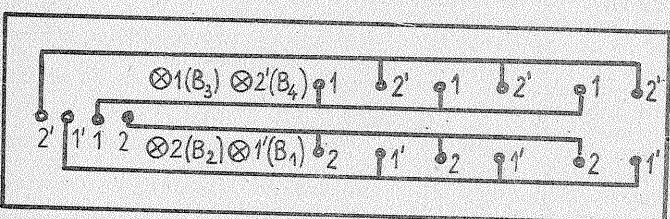 ⊗1(B₃) ⊗2'(B₄) 1 2' 1 2' 1 2'
2' 1' 1 2
⊗2(B₂) ⊗1'(B₁) 2 1' 2 1' 2 1'